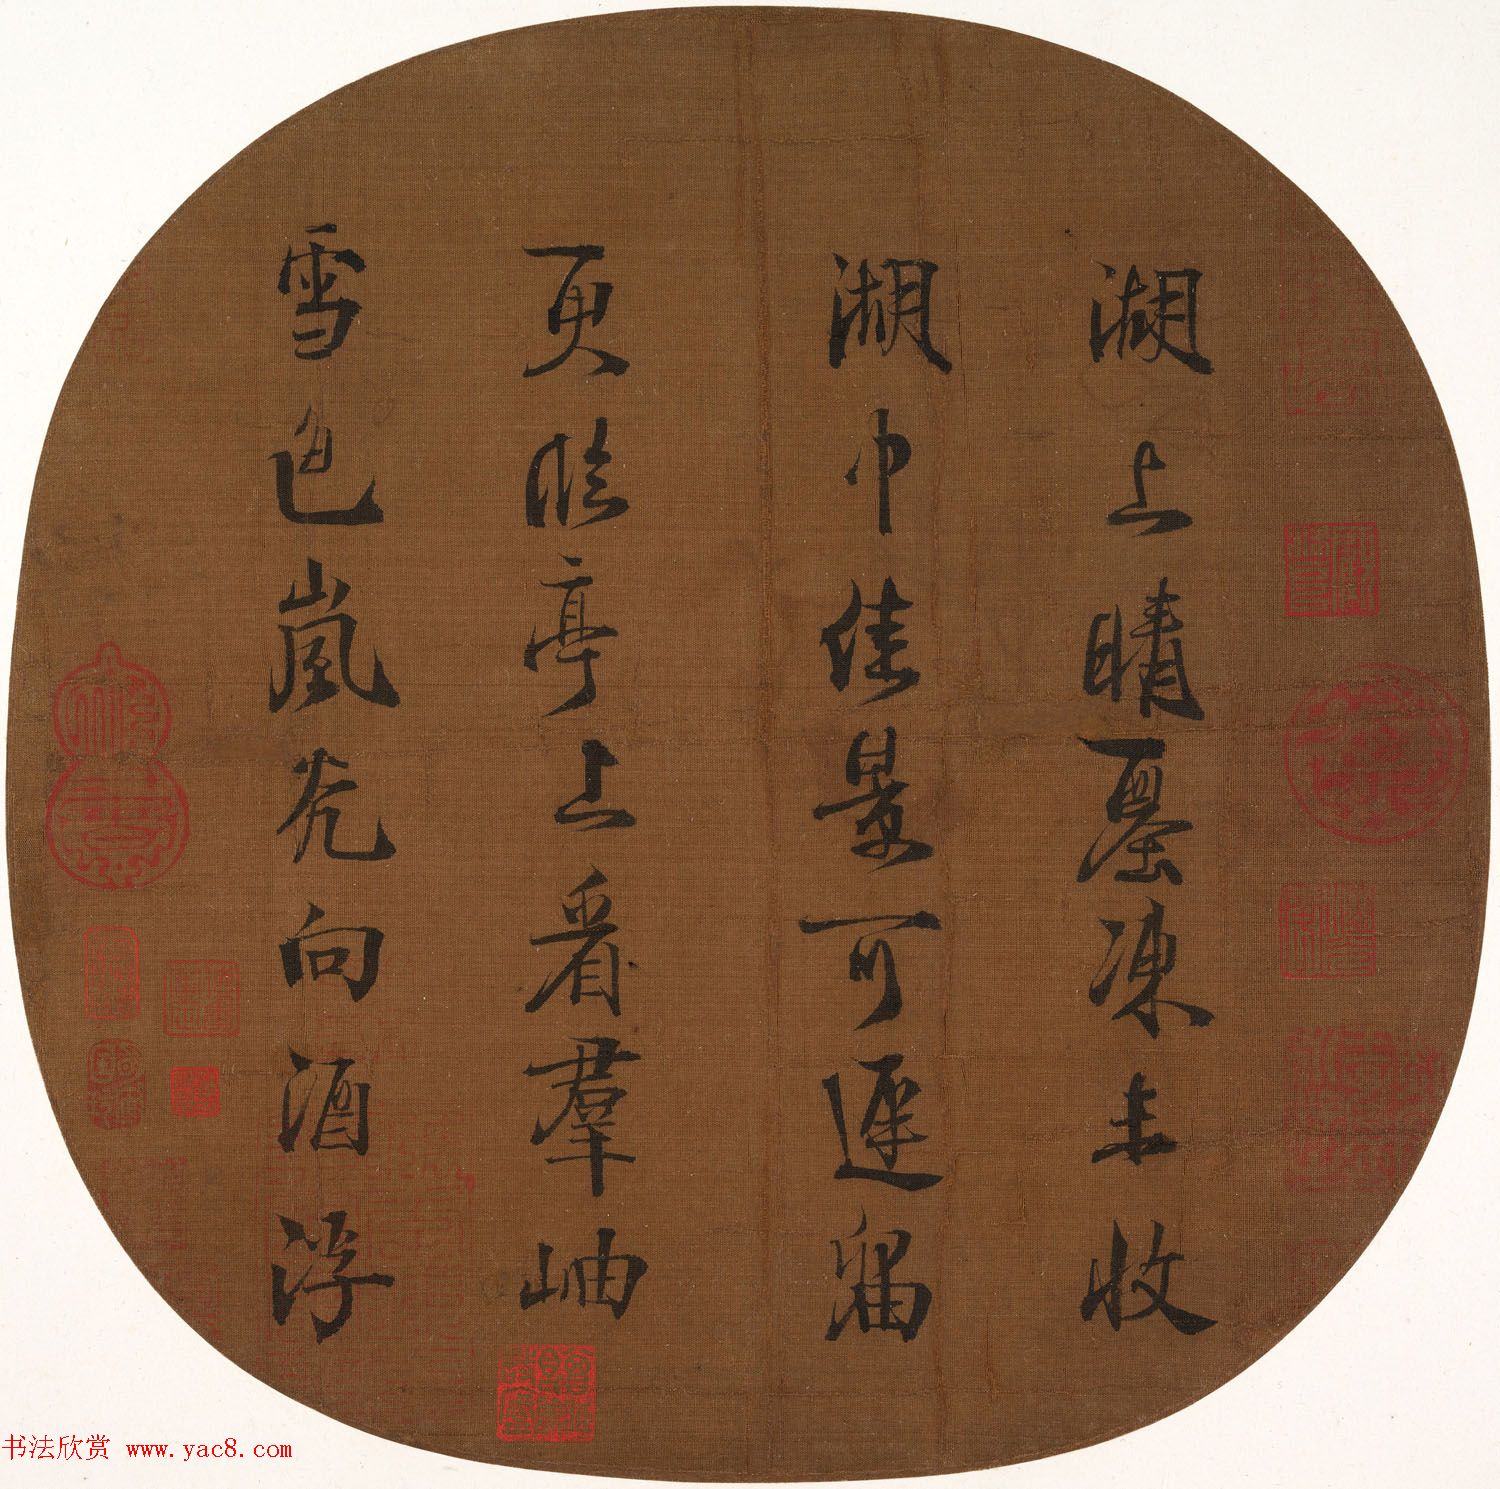 湖上晴凍未收
湖中佳景可遲留
更臨亭上看羣岫
雪色嵐光向酒浮
书法欣赏 www.yac8.com